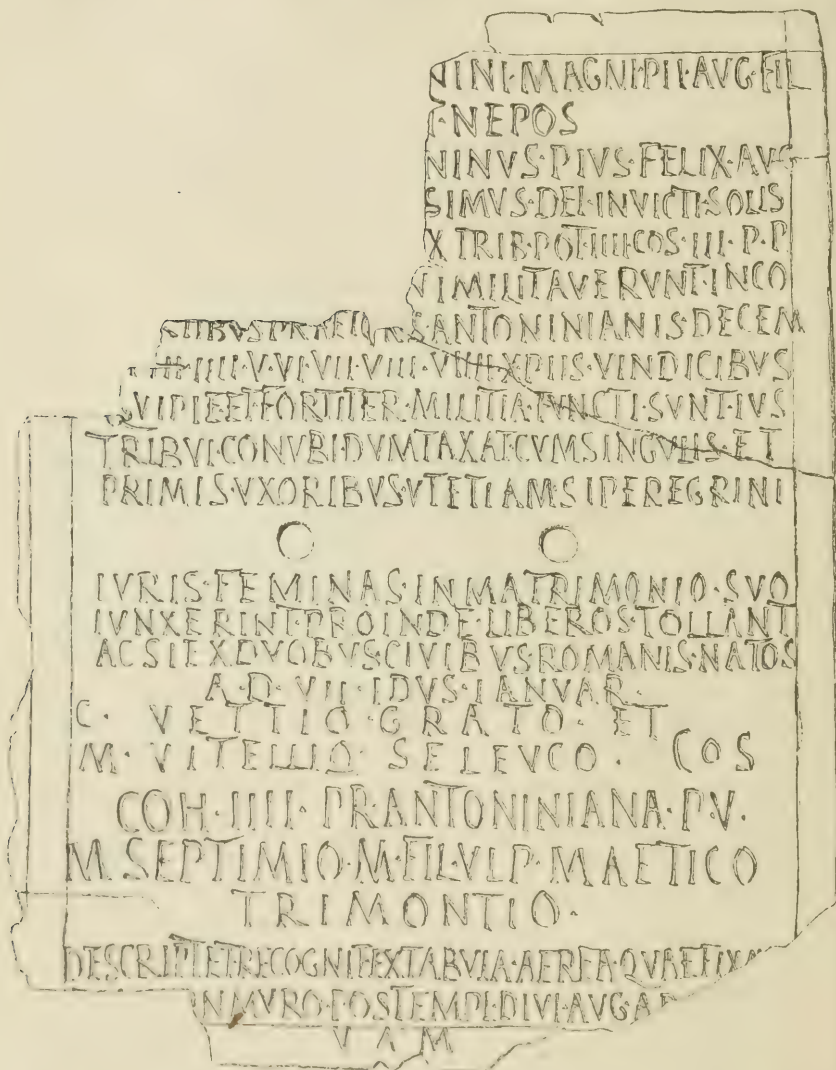 NINI·MAGNI·PII·AVG·FIL
T·NEPOS
NINVS·PIVS·FELIX·AVG
SIMVS·DEI·INVICTI·SOLIS
X TRIB·POT·IIII·COS·III·P·P
VI MILITAVERVNT·IN CO
ANTONINIANIS·DECEM
IIII·V·VI·VII·VIII·VIIII·X PIIS·VINDICIBVS
VI PIE ET FORTITER·MILITIA FVNCTI·SVNT·IVS
TRIBVI·CONVBI DVMTAXAT·CVM SINGVLIS·ET
PRIMIS·VXORIBVS·VT ETIAM·SI PEREGRINI
IVRIS·FEMINAS·IN MATRIMONIO·SVO
IVNXERINT·PROINDE·LIBEROS·TOLLANT
AC SI EX DVOBVS·CIVIBVS·ROMANIS·NATOS
A·D·VII·IDVS·IANVAR·
C· VETTIO·GRATO·ET
M·VITELLIO·SELEVCO·COS
COH·IIII·PR·ANTONINIANA·P·V·
M·SEPTIMIO·M·FIL·VLP·MAETICO
TRIMONTIO·
DESCRIPT·ET·RECOGNIT·EX TABVLA·AEREA·QVAE FIXA
IN MVRO·POS TEMPL·DIVI·AVG·A
VAM